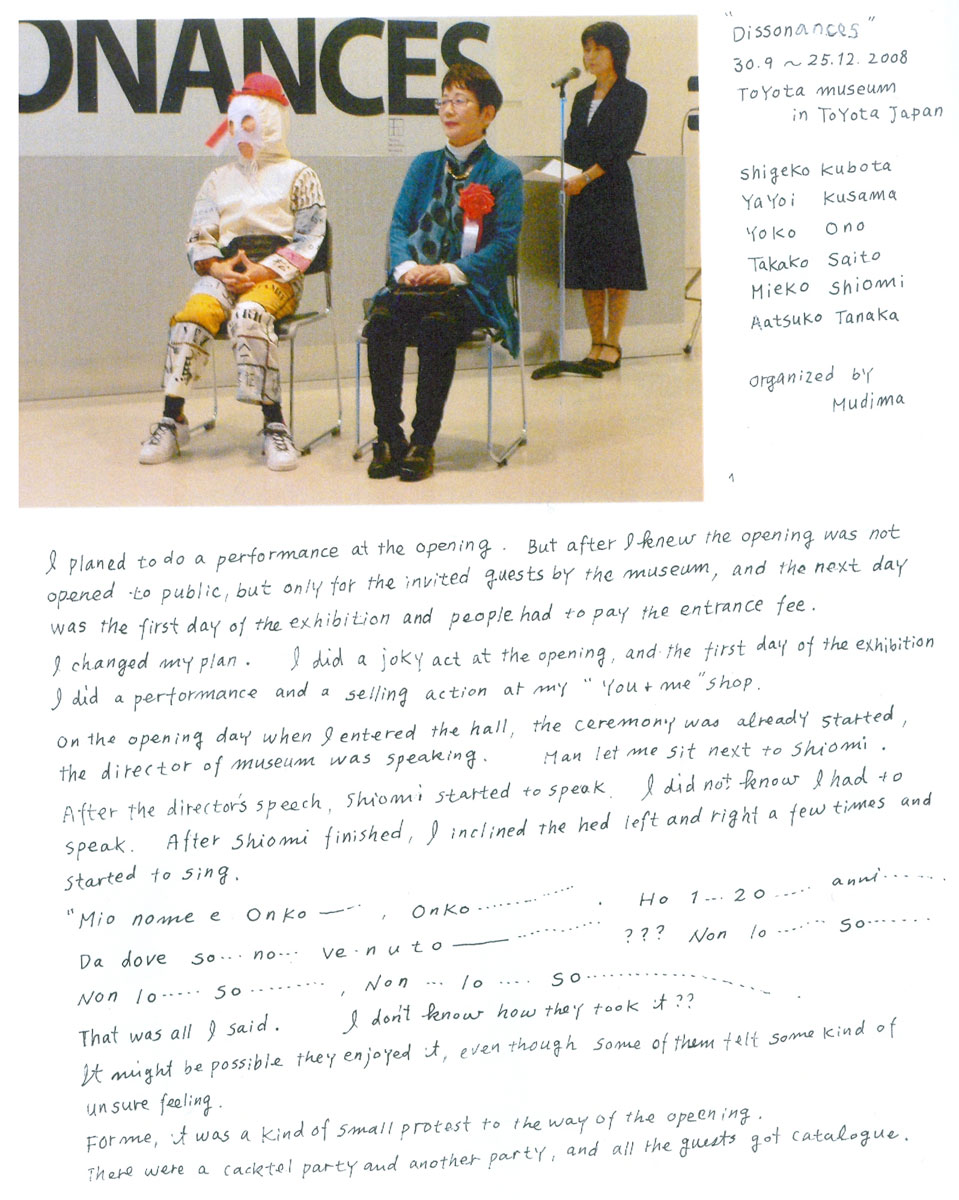 ONANCES
"Dissonances"
30.9 ~ 25.12. 2008
ToYota museum
in ToYota Japan
Shigeko Kubota
YaYoi Kusama
Yoko Ono
Takako Saito
Mieko Shiomi
Aatsuko Tanaka
organized by
Mudima
1
I planed to do a performance at the opening. But after I knew the opening was not
opened to public, but only for the invited guests by the museum, and the next day
was the first day of the exhibition and people had to pay the entrance fee.
I changed my plan. I did a joky act at the opening, and the first day of the exhibition
I did a performance and a selling action at my "You + me" shop.
On the opening day when I entered the hall, the ceremony was already started,
the director of museum was speaking. Man let me sit next to Shiomi.
After the director's speech, Shiomi started to speak. I did not know I had to
speak. After Shiomi finished, I inclined the hed left and right a few times and
started to sing.
"Mio nome e Onko —--, Onko.......... . Ho 1...20..... anni.......
Da dove so...no... ve.nuto —— .......... ??? Non lo...... so.......
Non lo..... so........., Non ... lo .... so.................... .
That was all I said. I don't know how they took it??
It might be possible they enjoyed it, even though some of them felt some kind of
unsure feeling.
For me, it was a kind of small protest to the way of the opeening.
There were a cacktel party and another party, and all the guests got catalogue.